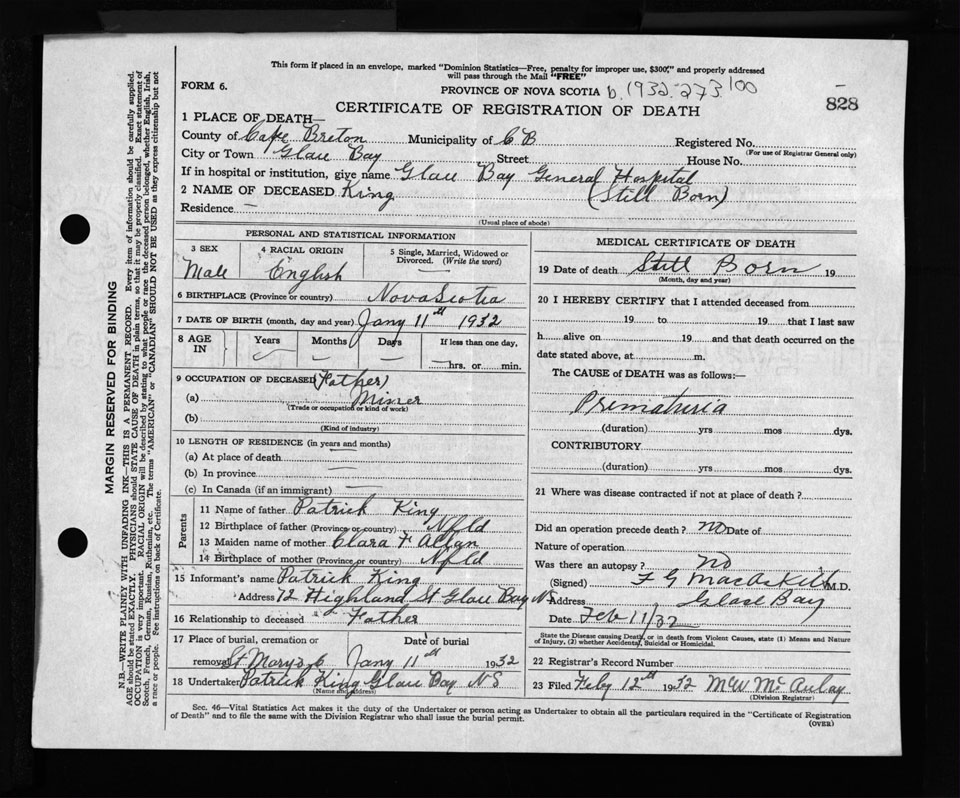 This form if placed in an envelope, marked "Dominion Statistics—Free, penalty for improper use, $300," and properly addressed
will pass through the Mail "FREE"
FORM 6.
PROVINCE OF NOVA SCOTIA b. 1932-273 100
828
CERTIFICATE OF REGISTRATION OF DEATH
1 PLACE OF DEATH—
County of Cape Breton Municipality of C B Registered No.
(For use of Registrar General only)
City or Town Glace Bay Street House No.
If in hospital or institution, give name Glace Bay General Hospital
2 NAME OF DECEASED King (Still Born)
Residence —
(Usual place of abode)
PERSONAL AND STATISTICAL INFORMATION
3 SEX 4 RACIAL ORIGIN 5 Single, Married, Widowed or Divorced. (Write the word)
Male English —
6 BIRTHPLACE (Province or country) Nova Scotia
7 DATE OF BIRTH (month, day and year) Jany 11th 1932
8 AGE IN Years Months Days If less than one day,
— hrs. or min.
9 OCCUPATION OF DECEASED (Father)
(a) Miner
(Trade or occupation or kind of work)
(b)
(Kind of industry)
10 LENGTH OF RESIDENCE (in years and months)
(a) At place of death —
(b) In province —
(c) In Canada (if an immigrant) —
Parents
11 Name of father Patrick King
12 Birthplace of father (Province or country) Nfld
13 Maiden name of mother Clara F Allan
14 Birthplace of mother (Province or country) Nfld
15 Informant's name Patrick King
Address 72 Highland St Glace Bay NS
16 Relationship to deceased Father
17 Place of burial, cremation or Date of burial
removal St Mary's C Jany 11th 1932
18 Undertaker Patrick King Glace Bay NS
(Name and address)
MEDICAL CERTIFICATE OF DEATH
19 Date of death Still Born 19
(Month, day and year)
20 I HEREBY CERTIFY that I attended deceased from
19 to 19 that I last saw
h alive on 19 and that death occurred on the
date stated above, at m.
The CAUSE of DEATH was as follows:—
Prematuria
(duration) yrs mos dys.
CONTRIBUTORY
(duration) yrs mos dys.
21 Where was disease contracted if not at place of death?
Did an operation precede death? no Date of
Nature of operation
Was there an autopsy? no
(Signed) F G MacAskill M.D.
Address Glace Bay
Date Feb 11/32
State the Disease causing Death, or in death from Violent Causes, state (1) Means and Nature
of Injury, (2) whether Accidental, Suicidal or Homicidal.
22 Registrar's Record Number
23 Filed Feby 12th 1932 McAulay
(Division Registrar)
Sec. 46—Vital Statistics Act makes it the duty of the Undertaker or person acting as Undertaker to obtain all the particulars required in the "Certificate of Registration
of Death" and to file the same with the Division Registrar who shall issue the burial permit.
(OVER)
MARGIN RESERVED FOR BINDING
N.B.—WRITE PLAINEY WITH UNFADING INK—THIS IS A PERMANENT RECORD. Every item of information should be carefully supplied.
AGE should be stated EXACTLY. PHYSICIANS should STATE CAUSE OF DEATH in plain terms, so that it may be properly classified. Exact statement of
OCCUPATION is very important. RACIAL ORIGIN will be described by stating to what people or race the deceased person belonged, whether English, Irish,
Scotch, French, German, Russian, Ruthenian, etc. The terms "AMERICAN" or "CANADIAN" SHOULD NOT BE USED as they express citizenship but not
a race or people. Fee instructions on back of Certificate.